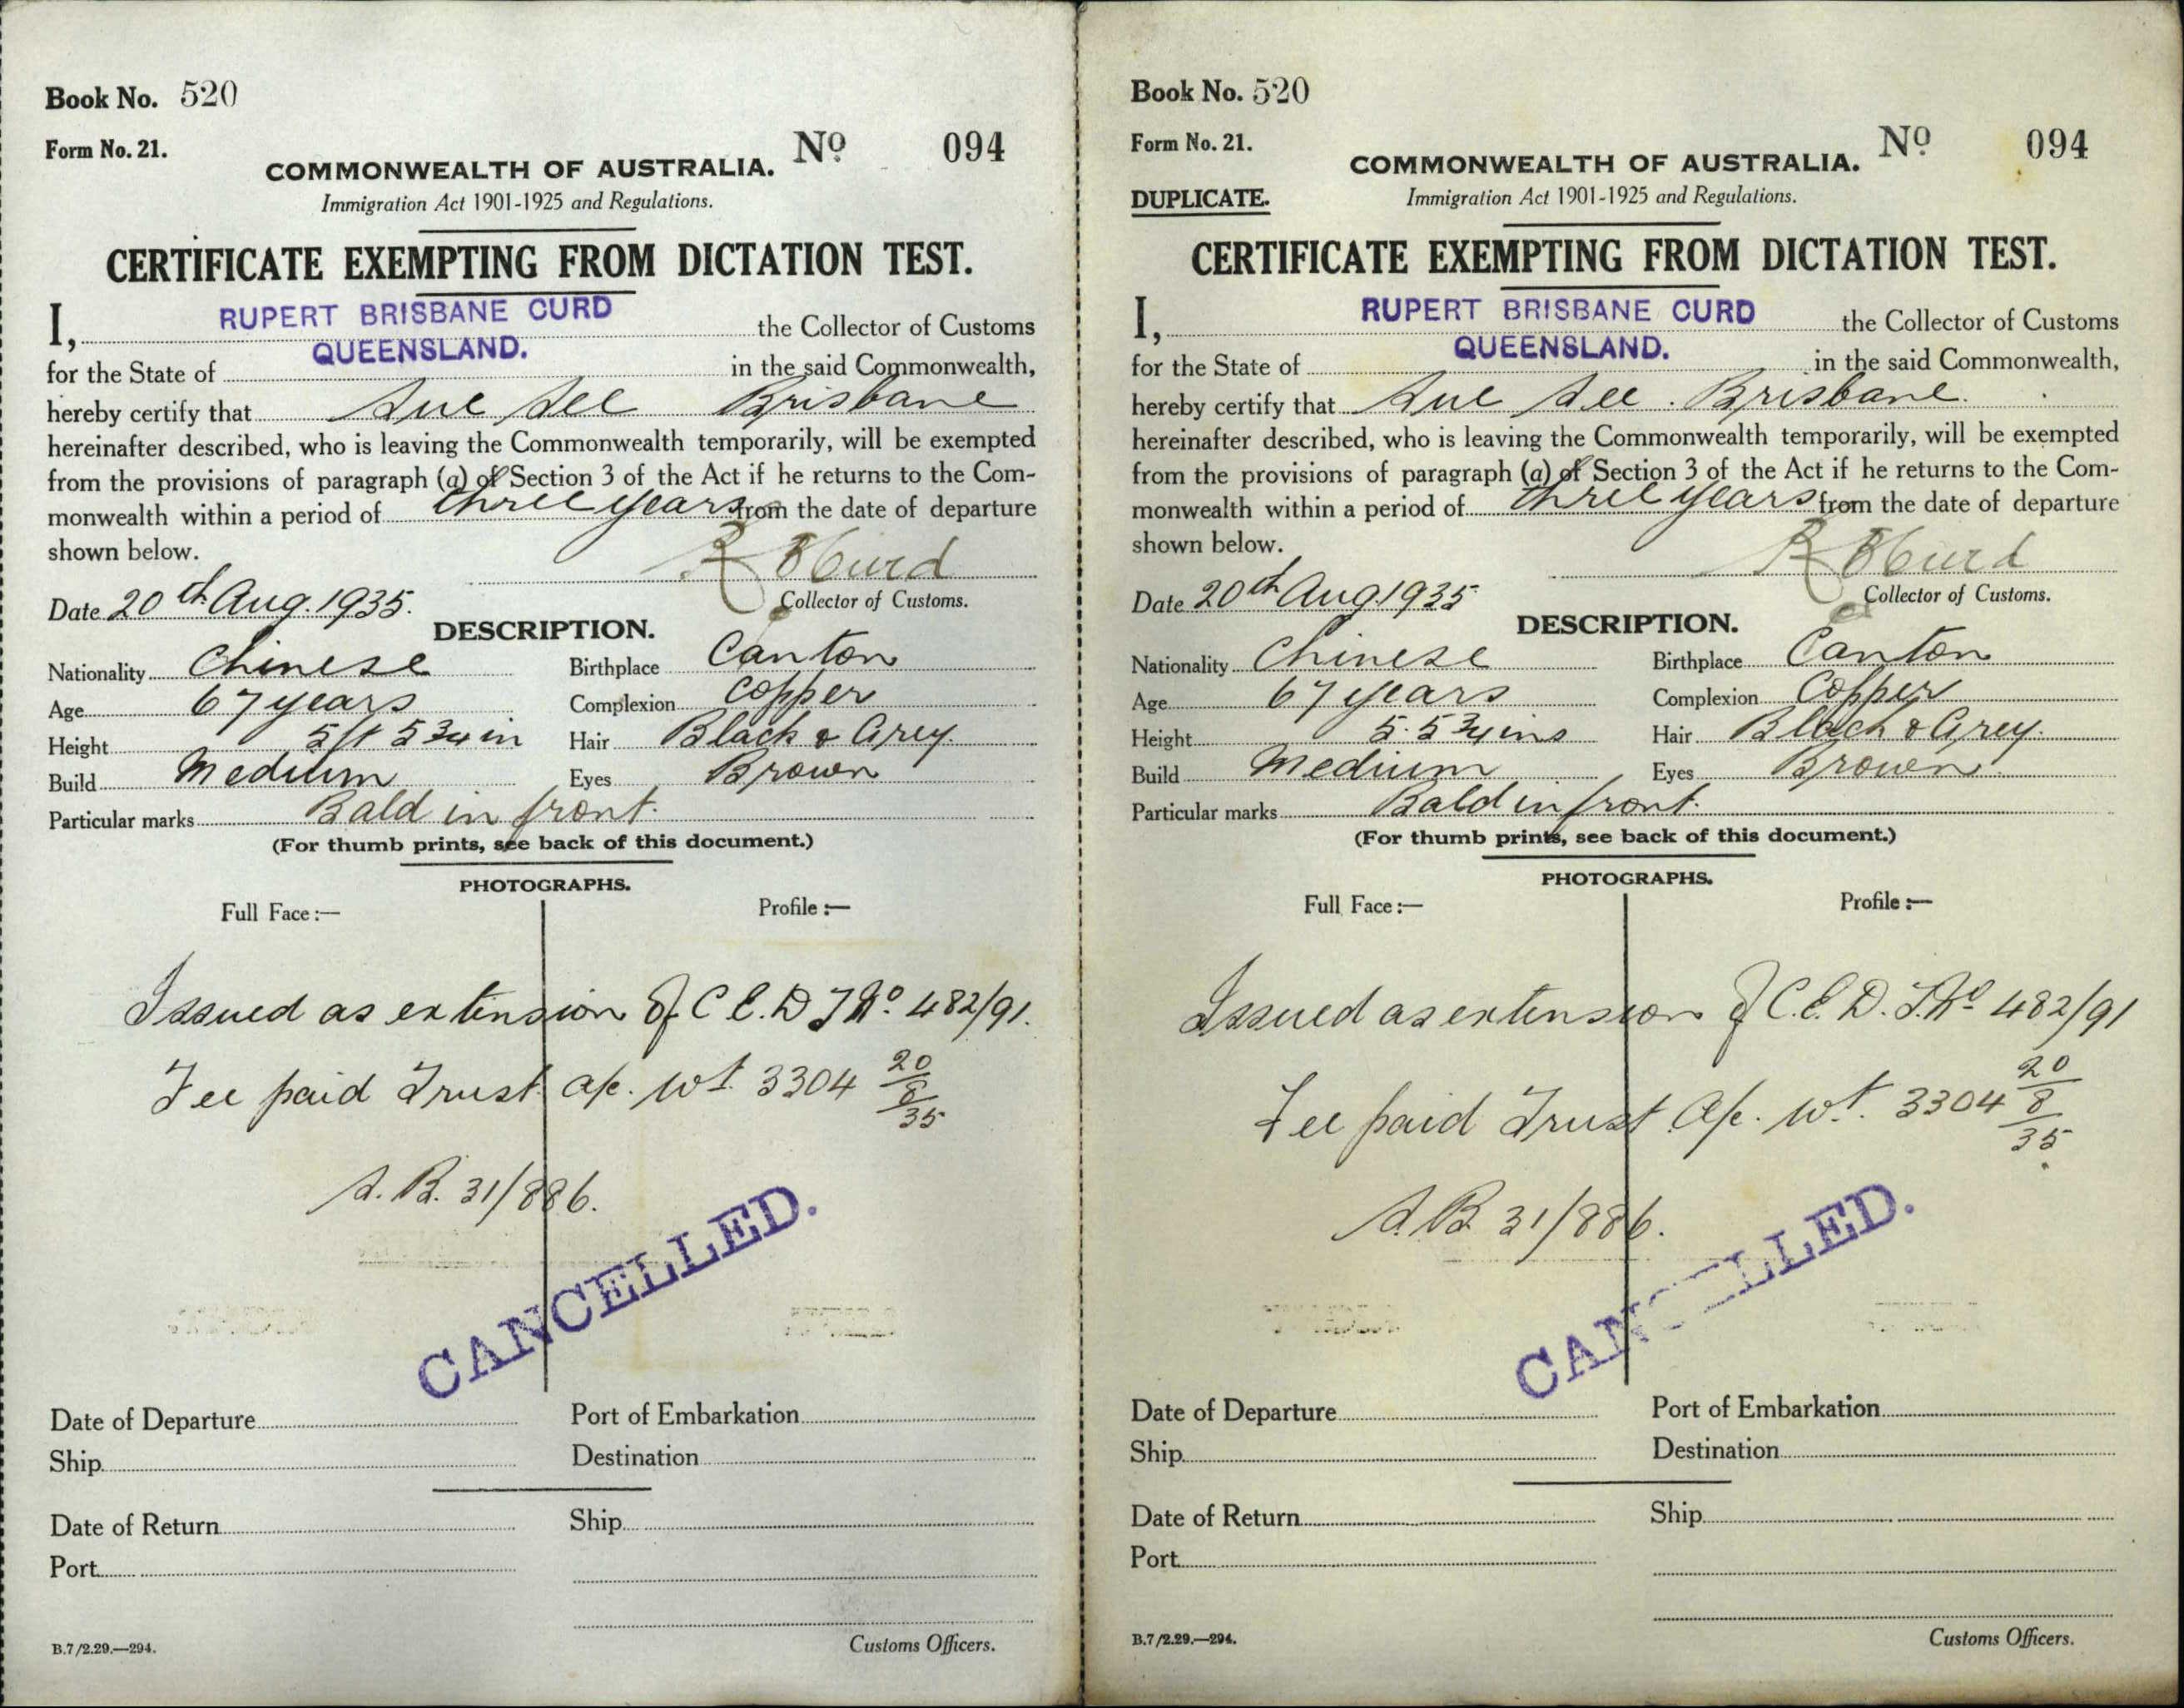 Book No. 520
Form No. 21.
No 094
COMMONWEALTH OF AUSTRALIA.
Immigration Act 1901-1925 and Regulations.
CERTIFICATE EXEMPTING FROM DICTATION TEST.
I, RUPERT BRISBANE CURD the Collector of Customs
for the State of QUEENSLAND. in the said Commonwealth,
hereby certify that Sue See Brisbane
hereinafter described, who is leaving the Commonwealth temporarily, will be exempted
from the provisions of paragraph (a) of Section 3 of the Act if he returns to the Com-
monwealth within a period of three years from the date of departure
shown below.
R B Curd
Date 20th Aug. 1935. Collector of Customs.
DESCRIPTION.
Nationality Chinese Birthplace Canton
Age 67 years Complexion Copper
Height 5 ft 5 3/4 in Hair Black & Grey.
Build Medium Eyes Brown
Particular marks Bald in front.
(For thumb prints, see back of this document.)
PHOTOGRAPHS.
Full Face:— Profile:—
Issued as extension of C.E.D.T. No. 482/91.
Fee paid Trust a/c. Wt. 3304 20/8/35
S.B. 31/886.
CANCELLED.
Date of Departure Port of Embarkation
Ship Destination
Date of Return Ship
Port
B.7/2.29.—294. Customs Officers.
Book No. 520
Form No. 21.
No 094
COMMONWEALTH OF AUSTRALIA.
DUPLICATE. Immigration Act 1901-1925 and Regulations.
CERTIFICATE EXEMPTING FROM DICTATION TEST.
I, RUPERT BRISBANE CURD the Collector of Customs
for the State of QUEENSLAND. in the said Commonwealth,
hereby certify that Sue See. Brisbane.
hereinafter described, who is leaving the Commonwealth temporarily, will be exempted
from the provisions of paragraph (a) of Section 3 of the Act if he returns to the Com-
monwealth within a period of three years from the date of departure
shown below.
R B Curd
Date 20th Aug 1935 Collector of Customs.
DESCRIPTION.
Nationality Chinese Birthplace Canton
Age 67 years Complexion Copper
Height 5. 5 3/4 ins Hair Black & Grey.
Build Medium Eyes Brown.
Particular marks Bald in front.
(For thumb prints, see back of this document.)
PHOTOGRAPHS.
Full Face:— Profile:—
Issued as extension of C.E.D.T. No 482/91
Fee paid Trust A/c. Wt. 3304 20/8/35
S.B. 31/886.
CANCELLED.
Date of Departure Port of Embarkation
Ship Destination
Date of Return Ship
Port
B.7/2.29.—294. Customs Officers.